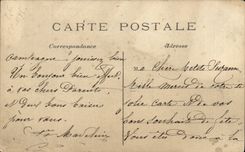 CARTE POSTALE
Correspondance
Adresse
campagne jouissez bien
Un bonjour bien affect.
à vos chers Parents
et Deux bons baisers
pour vous.
Ma Chère Petite Suzanne
Mille mercis de votre
jolie carte et de vos
bons souhaits de fête
Vous êtes donc à la